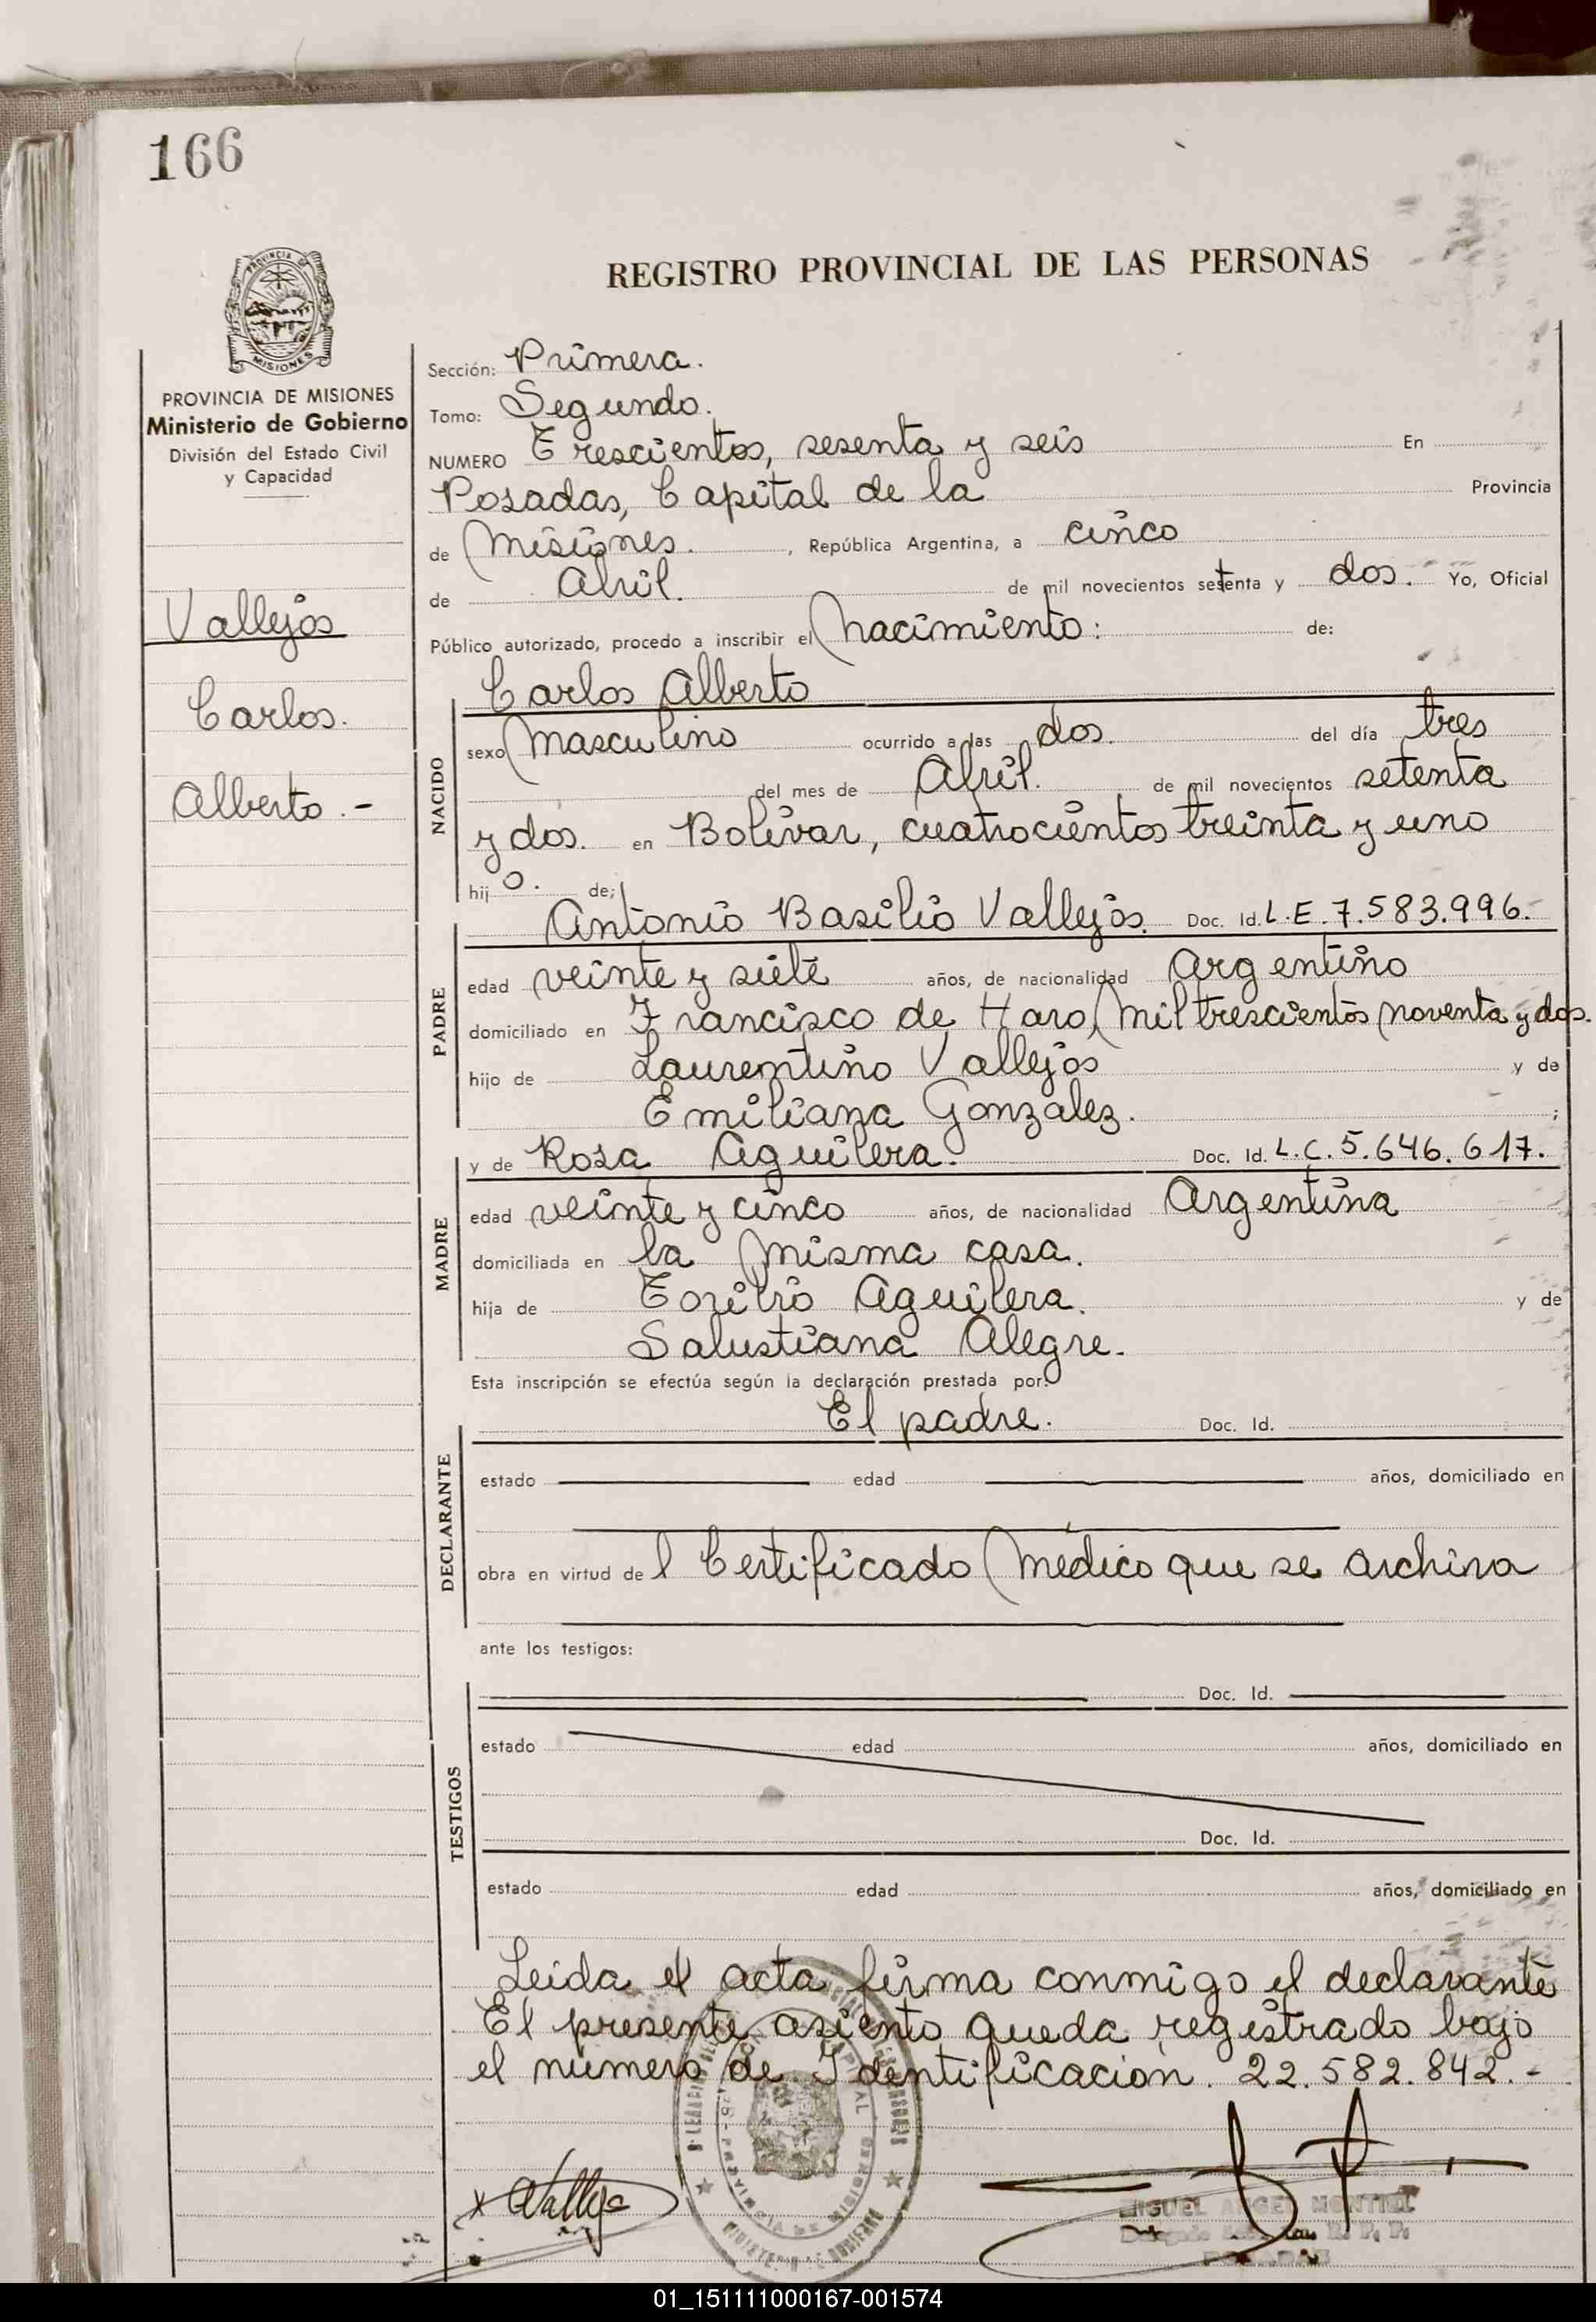 166
PROVINCIA DE
MISIONES
REGISTRO PROVINCIAL DE LAS PERSONAS
PROVINCIA DE MISIONES
Ministerio de Gobierno
División del Estado Civil
y Capacidad
Vallejos
Carlos.
Alberto.-
Sección: Primera.
Tomo: Segundo.
NUMERO Trescientos, sesenta y seis En
Posadas, Capital de la Provincia
de Misiones. , República Argentina, a cinco
de Abril. de mil novecientos setenta y dos. Yo, Oficial
Público autorizado, procedo a inscribir el nacimiento: de:
Carlos Alberto
NACIDO
sexo Masculino ocurrido a las dos. del día tres
del mes de Abril. de mil novecientos setenta
y dos. en Bolívar, cuatrocientos treinta y uno
hij o. de;
Antonio Basilio Vallejos. Doc. Id. L.E. 7.583.996.-
PADRE
edad veinte y siete años, de nacionalidad Argentino
domiciliado en Francisco de Haro, mil trescientos noventa y dos.
hijo de Laurentino Vallejos y de
Emiliana Gonzalez. ;
y de Rosa Aguilera. Doc. Id. L.C. 5.646.617.
MADRE
edad veinte y cinco años, de nacionalidad Argentina
domiciliada en la misma casa.
hija de Toribio Aguilera. y de
Salustiana Alegre.
Esta inscripción se efectúa según la declaración prestada por:
El padre. Doc. Id.
DECLARANTE
estado edad años, domiciliado en
obra en virtud de l Certificado Médico que se archiva
ante los testigos:
Doc. Id.
TESTIGOS
estado edad años, domiciliado en
Doc. Id.
estado edad años, domiciliado en
Leida el acta firma conmigo el declarante
El presente asiento queda registrado bajo
el número de Identificación. 22.582.842.-
x AVallejo
MIGUEL ANGEL MONTIEL
01_151111000167-001574